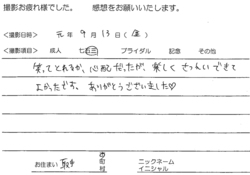 撮影お疲れ様でした。 感想をお願いいたします。
<撮影日時> 元年 9月 13日 (金)
<撮影項目> 成人 七五三 ブライダル 記念 その他
笑ってとれるか、心配だったが、楽しく さつえいできて
よかったです。 ありがとうございました♡
お住まい 取手 市 町 村 ニックネーム イニシャル